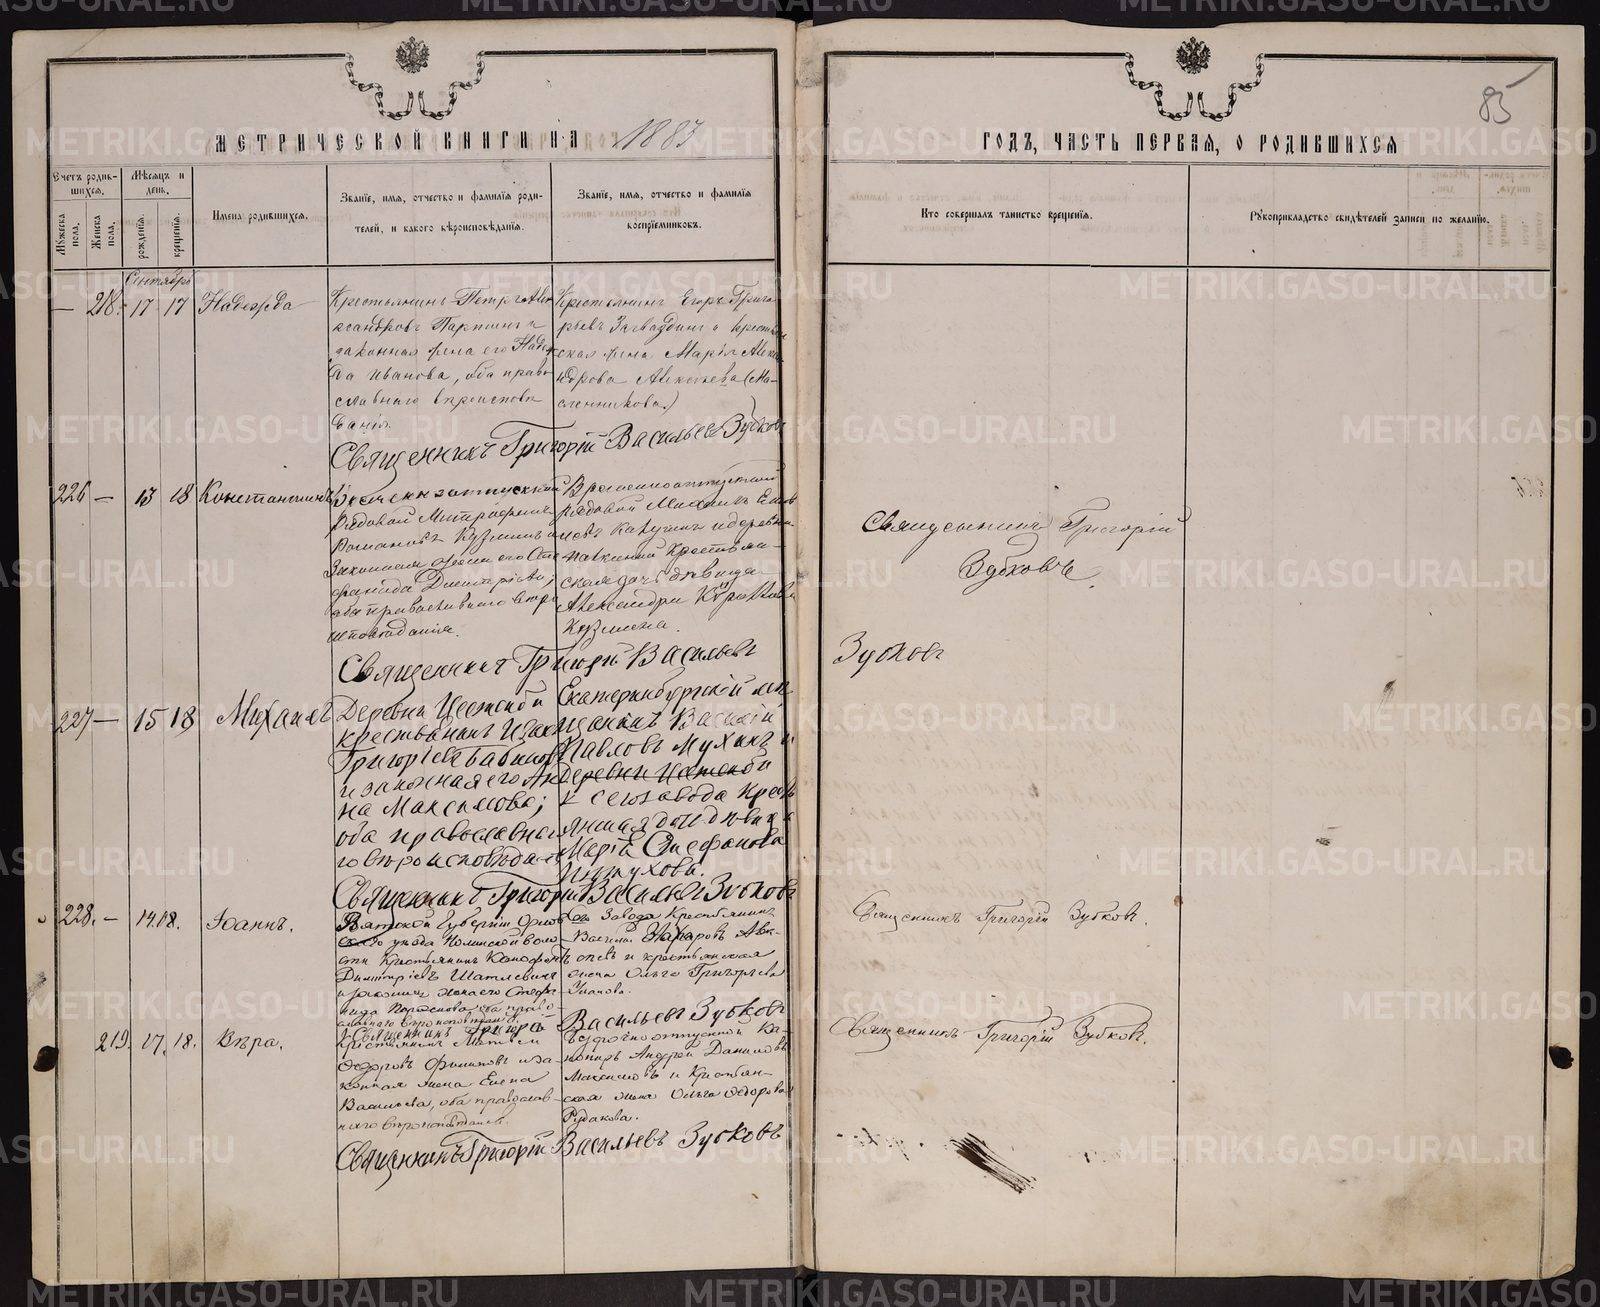 85
МЕТРИЧЕСКОЙ КНИГИ НА 1883
ГОДЪ, ЧАСТЬ ПЕРВАЯ, О РОДИВШИХСЯ
Счетъ родив-
шихся.
Мѣсяцъ и
день.
Мужеска
пола.
Женска
пола.
рожденія.
крещенія.
Имена родившихся.
Званіе, имя, отчество и фамилія роди-
телей, и какого вѣроисповѣданія.
Званіе, имя, отчество и фамилія
воспріемниковъ.
Кто совершалъ таинство крещенія.
Рукоприкладство свидѣтелей записи по желанію.
Сентябрь
— 218. 17 17 Надежда
Крестьянинъ Петръ Алек
сандровъ Паршинъ и
законная жена его Надеж
да Иванова, оба право
славнаго вѣроисповѣ
данія.
Крестьянинъ Егоръ Григо
рьевъ и крестьян
ская жена Марія Алекса
ндрова Алексѣева (Ма-
сленникова)
Священникъ Григорій Васильевъ Зубковъ
226 — 13 18 Константинъ
Временноотпускной
рядовой Митрофанъ
Романовъ Кузминъ и
Законная жена его Сте
фанида Димитріева,
оба православнаго вѣро
исповѣданія.
Временноотпускной
рядовой Михаилъ
крестьян
ская дочь дѣвица
Александра
Кузмина.
Священникъ Григорій
Зубковъ
Священникъ Григорій Васильевъ Зубковъ
227 — 15 18 Михаилъ
Деревни
крестьянинъ
Григорьевъ Бабинъ
и законная его Ан
на Максимова;
оба православна
го вѣроисповѣда
Екатеринбургскій мѣ
щанинъ Василій
Павловъ Мухинъ и
Деревни
сего завода крест
янская дочь дѣвица
Марія Стефанова
Священникъ Григорій Васильевъ Зубковъ
228. — 14. 18. Іоаннъ.
Вятской Губерніи Орлов
скаго уѣзда воло
сти Крестьянинъ
Димитріевъ
и законная жена его Стефа
нида оба право
славнаго вѣроисповѣданія.
Сего Завода Крестьянинъ
Василій Захаровъ
и крестьянская
жена Ольга Григорьева
Уланова.
Священникъ Григорій Зубковъ.
Священникъ Григорій Васильевъ Зубковъ
219. 17. 18. Вѣра.
Крестьянинъ Матвѣй
Ѳедоровъ и за-
конная жена Елена
Васильева, оба православ-
наго вѣроисповѣданія.
Безсрочноотпускной Ка-
нониръ Андрей Даниловъ
Максимовъ и Крестьян-
ская жена Ольга Ѳедорова
Рудакова.
Священникъ Григорій Зубковъ.
Священникъ Григорій Васильевъ Зубковъ
METRIKI.GASO-URAL.RU